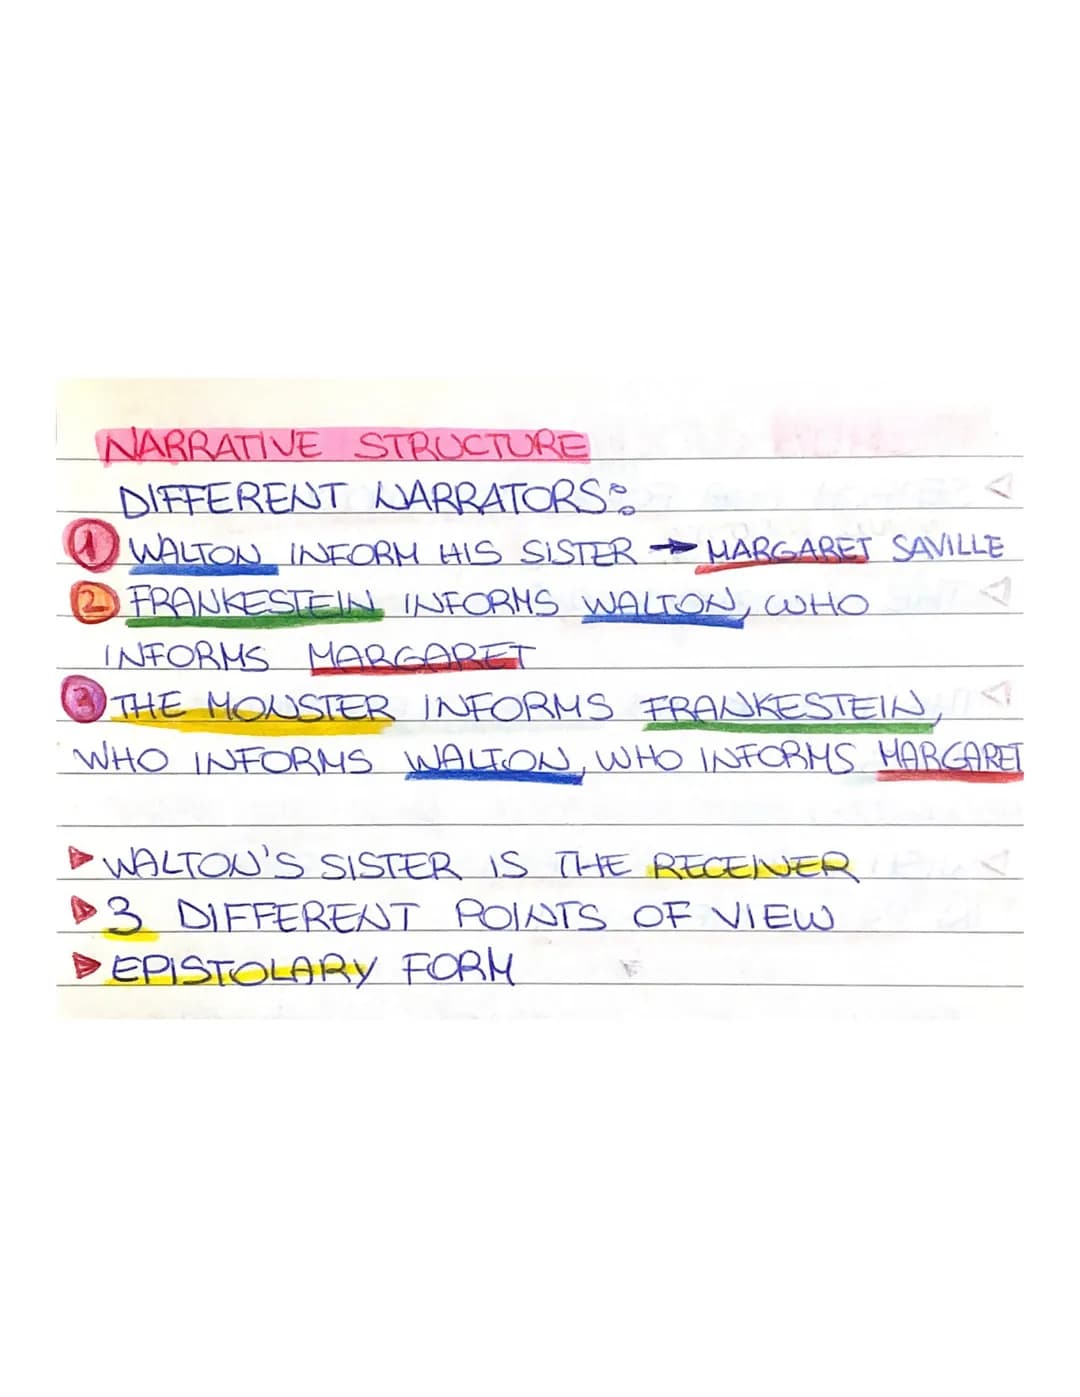 NARRATIVE STRUCTURE
DIFFERENT NARRATORS:
1 WALTON INFORM HIS SISTER → MARGARET SAVILLE
2 FRANKESTEIN INFORMS WALTON, WHO
INFORMS MARGARET
3 THE MONSTER INFORMS FRANKESTEIN,
WHO INFORMS WALTON, WHO INFORMS MARGARET
▷ WALTON'S SISTER IS THE RECEIVER
▷ 3 DIFFERENT POINTS OF VIEW
▷ EPISTOLARY FORM